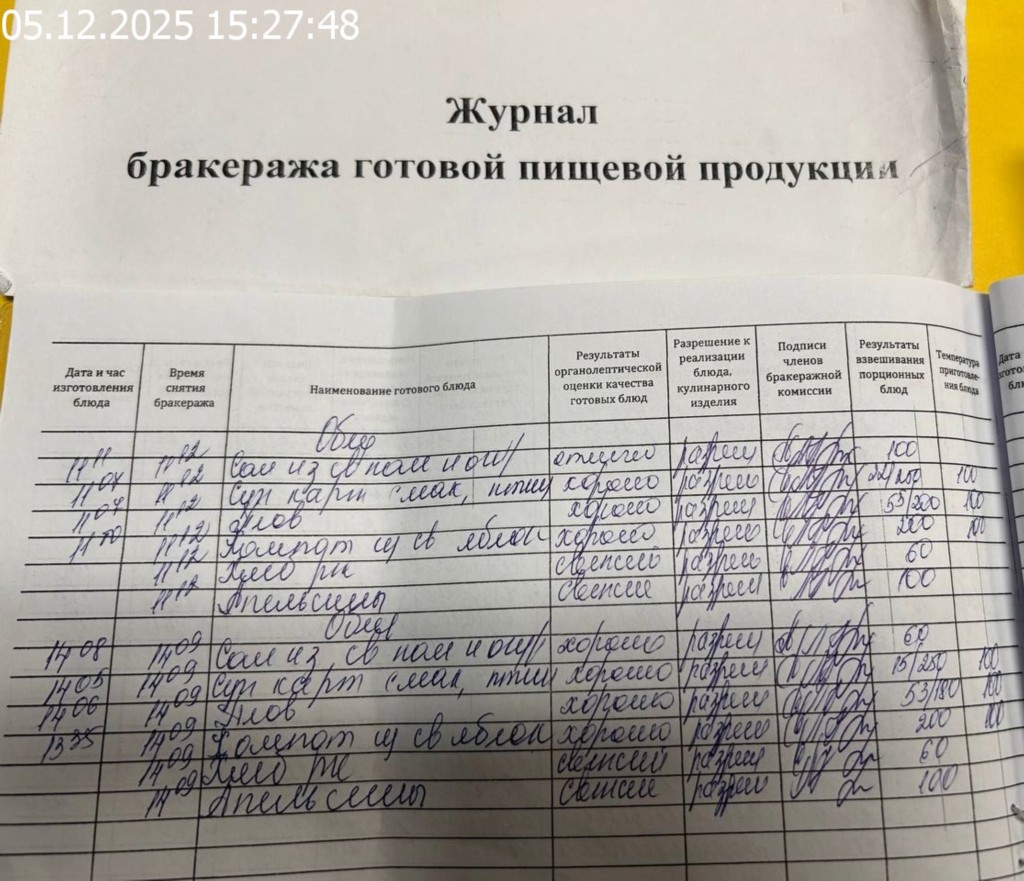 05.12.2025 15:27:48
Журнал
бракеража готовой пищевой продукции
Дата и час изготовления блюда
Время снятия бракеража
Наименование готового блюда
Результаты органолептической оценки качества готовых блюд
Разрешение к реализации блюда, кулинарного изделия
Подписи членов бракеражной комиссии
Результаты взвешивания порционных блюд
Температура приготовле-ния блюда
Дата
Обед
11 11 11 12 Сал из св пом и ог/ отлично разреш 100
11 07 11 12 Суп карт с мак, птиц хорошо разреш /250 100
11 07 11 12 Плов хорошо разреш 53/200 100
11 00 11 12 Компот из св яблок хорошо разреш 200 100
11 12 Хлеб рж свежий разреш 60
11 12 Апельсины свежий разреш 100
Обед
14 08 14 09 Сал из св пом и ог/ хорошо разреш 60
14 05 14 09 Суп карт с мак, птиц хорошо разреш 15/250 100
14 06 14 09 Плов хорошо разреш 53/180 100
13 35 14 09 Компот из св яблок хорошо разреш 200 100
14 09 Хлеб рж свежий разреш 60
14 09 Апельсины свежий разреш 100